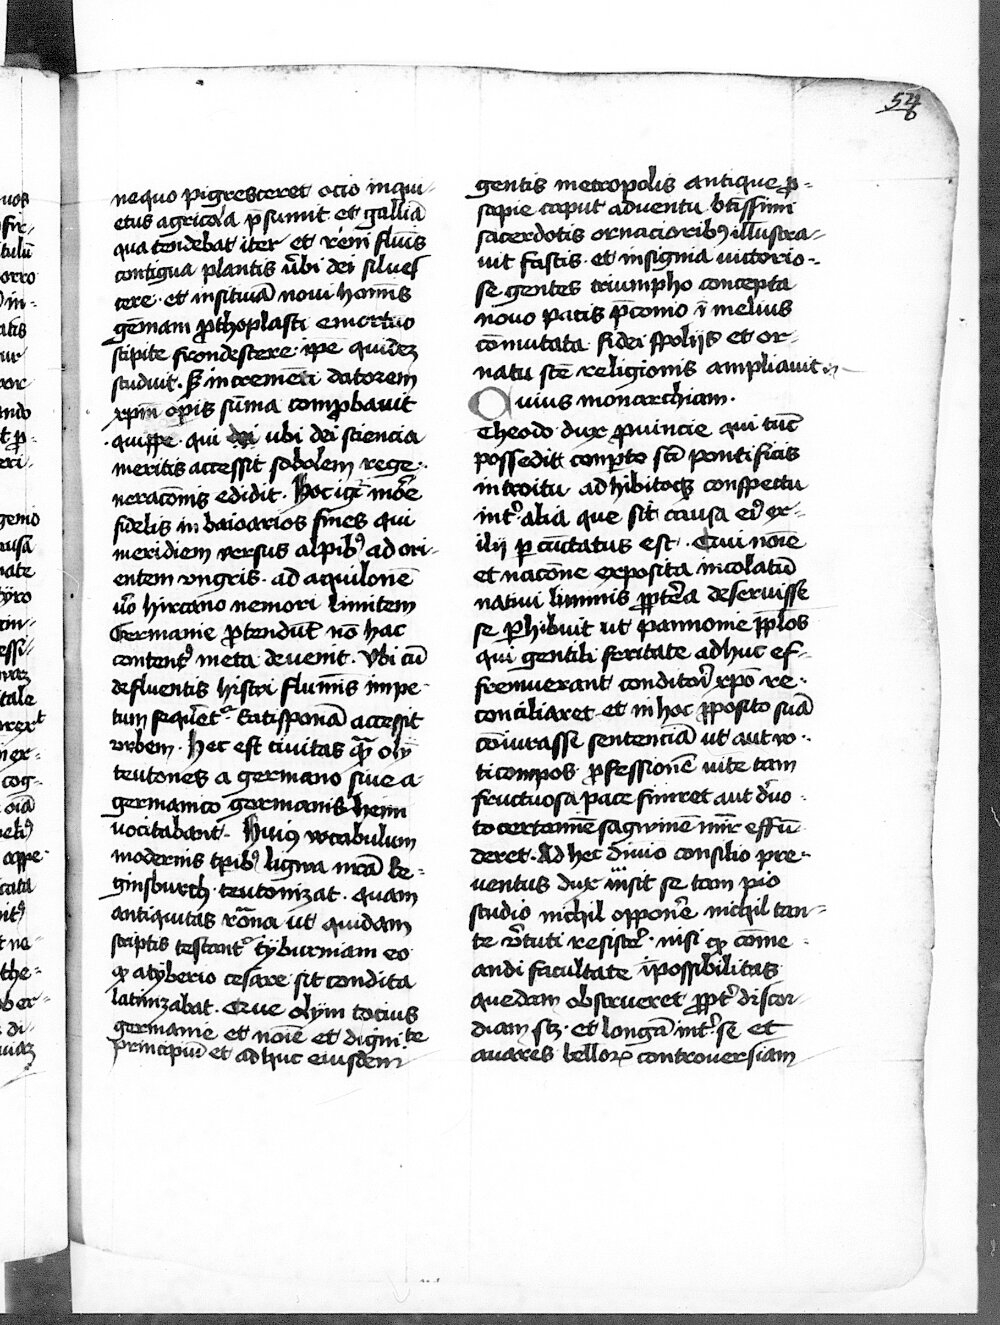 54
nequo pigresceret ocio inqui-
etus agricola psumit et galliā
qua tendebat iter et reni fluīs
contigua plantis v̄bi dei silues
cere et insitiuā noui hoīmis
gēmam p̱thoplasti emortuo
stipite fcondescere ip̄e quidez
studuit. S; incremēti datorem
xpm̄ opis sūma comp̱bauit
quippe qui ubi dei sciencia
meritis accessit sobolem rege-
neracōnis edidit. Hoc igr̄ mōre
fidelis in baioarios fines qui
meridiem versus alpibꝰ ad ori-
entem vngris. ad aquilonē
v̄o hircano nemori limitem
Germanie p̱tendūt nō hac
contentꝰ meta deuenit. Vbi cū
defluentis histri flumīs impe-
tum sequeret̄ Ratisponā accessit
vrbem. Hec est ciuitas quā olī
teutones a germano siue a
germanico germanishem
vocitabant. Huiꝰ vocabulum
modernis tpibꝰ ligwa nrā Re-
ginsburch teutonizat. quam
antiquitas rōna ut quidam
scriptis testant̄ tyburniam eo
qꝫ a tyberio cesare sit condita
latinizabat. Que olym tocius
germanie et noīe et dignite
principiū et adhuc eiusdem
gentis metropolis antique p̱-
sapie caput aduentu btissimi
sacerdotis ornacioribꝰ illustra-
uit fastis et insignia uictorio-
se gentes triumpho concepta
nouo pacis p̄conio ī melius
cōmutata fidei spoliis et or-
natu scē religionis ampliauit.
Cuius monarchiam.
Theodo dux p̱uincie qui tūc
possedit comp̱to scī pontificis
introitu adhibitoqꝫ conspectu
int̄ alia que sit causa eiꝰ ex-
ilii p̱cūctatus est. Cui noīe
et nacōne exposita incolatū
natiui liminis p̱pt̄ea deseruisse
se p̱hibuit ut pannonie pp̄los
qui gentili feritate adhuc ef-
fremuerant conditori xpō re-
conciliaret et in hoc p̱posito suā
cōiurasse sentenciā ut aut vo-
ti compos p̱fessionē uite tam
fructuosa pace finiret aut d̄uo-
to certamīe sagwinē effū-
deret. Ad hec diuīo consilio pre-
uentus dux se tam pio
studio nichil opponē nichil tan-
te v̄tuti resistē. nisi qꝫ cōme-
andi facultate īpossibilitas
quedam obstrueret p̱pt̄ discor-
diam scz. et longā int̄ se et
auares belloꝝ controuersiam